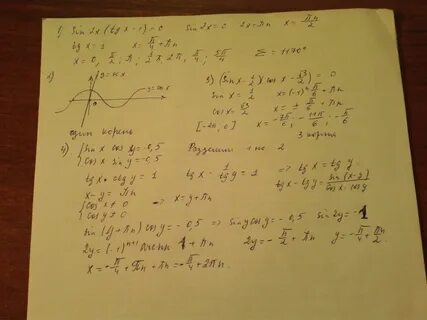 1) sin 2x (tg x - 1) = 0   sin 2x = 0   2x = πn   x = πn/2
tg x = 1   x = π/4 + πn
x = 0, π/2; π; 3/2 π, 2π, π/4; 5π/4   Σ = 1170°
2)
y=cosx
0
один корень
3) (sin x - 1/2)(cos x - √3/2) = 0
sin x = 1/2   x = (-1)ⁿ π/6 + πn
cos x = √3/2   x = ± π/6 + πn
[-2π, 0]   x = -7π/6, -11π/6, -π/6
3 корня
4) { sin x cos y = -0,5
{ cos x sin y = -0,5   Разделим 1 на 2
tg x · ctg y = 1   tg x · 1/tg y = 1 => tg x = tg y
x - y = πn   tg x - tg y = sin(x-y)/cos x cos y
{ cos x ≠ 0
{ cos y ≠ 0   => x = y + πn
sin (y + πn) cos y = -0,5 => sin y cos y = -0,5   sin 2y = -1
2y = (-1)ⁿ⁺¹ 1 + πn   2y = -π/2 + πn   y = -π/4 + πn/2
x = -π/4 + πn + πn = -π/4 + 2πn.